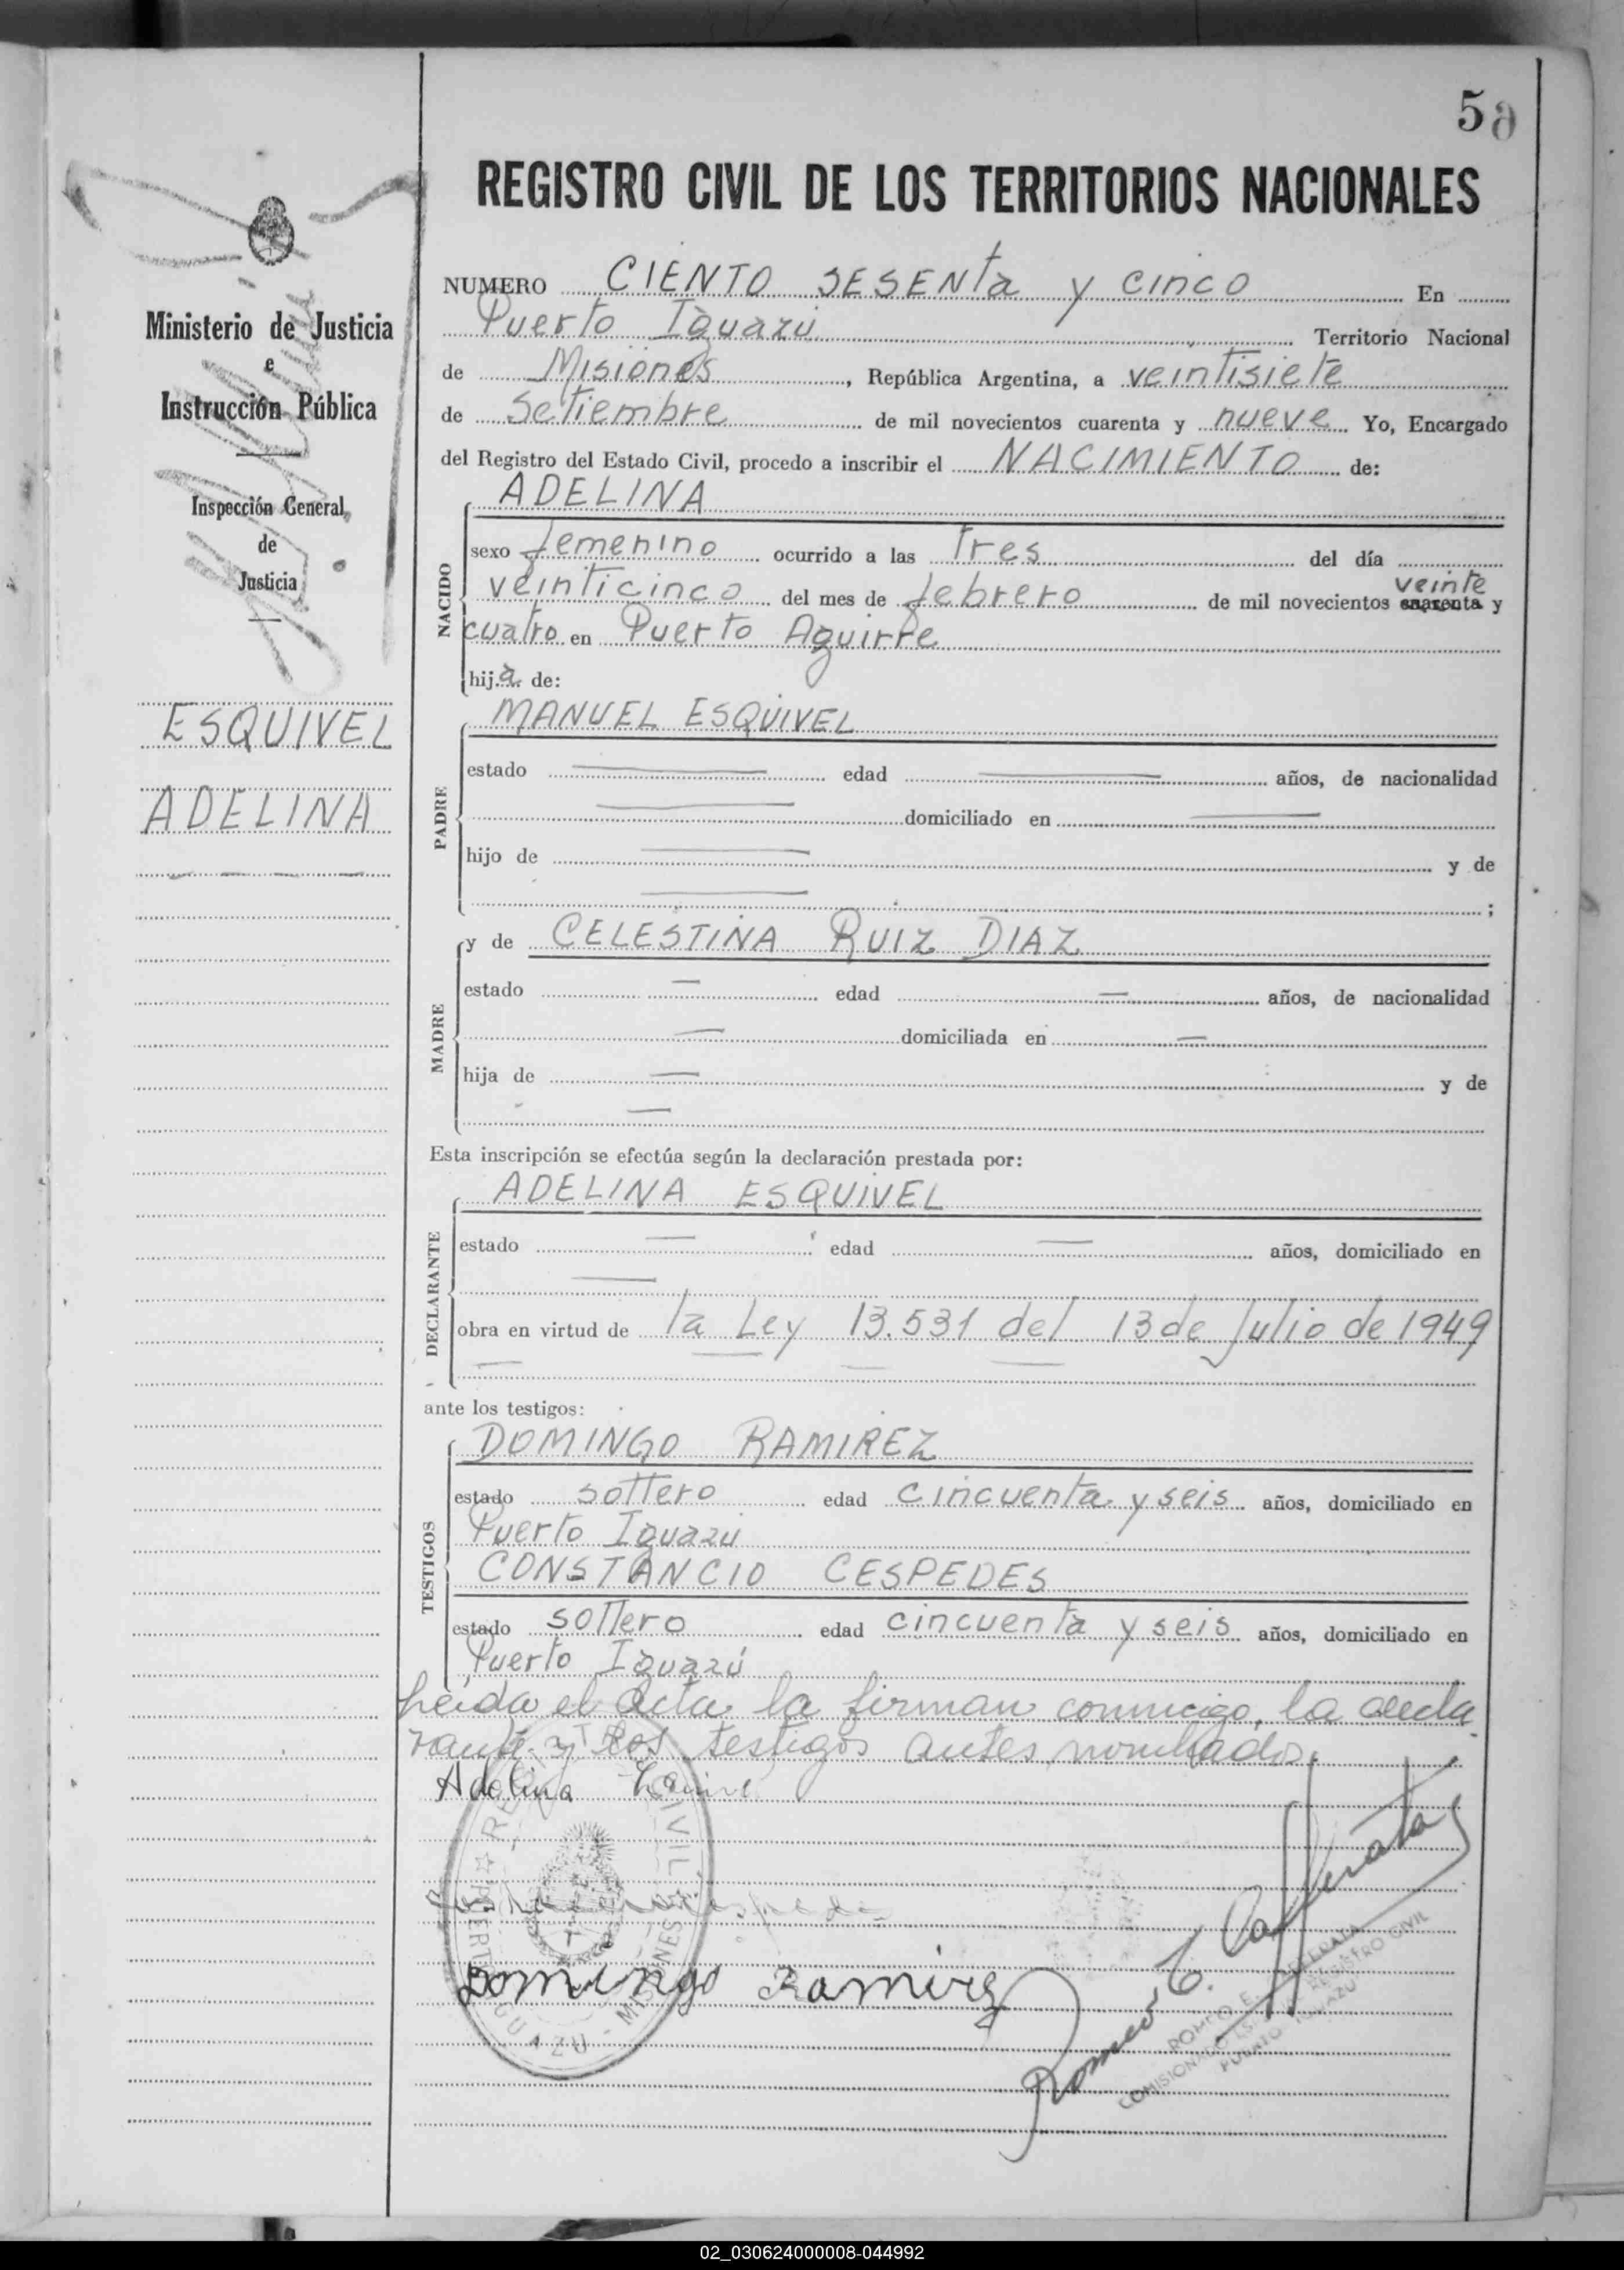 56
REGISTRO CIVIL DE LOS TERRITORIOS NACIONALES
Ministerio de Justicia
e
Instrucción Pública
Inspección General
de
Justicia
ESQUIVEL
ADELINA
NUMERO CIENTO SESENta y cinco En
Puerto Iguazú Territorio Nacional
de Misiones, República Argentina, a veintisiete
de Setiembre de mil novecientos cuarenta y nueve Yo, Encargado
del Registro del Estado Civil, procedo a inscribir el NACIMIENTO de:
NACIDO
ADELINA
sexo femenino ocurrido a las Tres del día
veinte
veinticinco del mes de febrero de mil novecientos cuarenta y
cuatro en Puerto Aguirre
hija de:
PADRE
MANUEL ESQUIVEL
estado edad años, de nacionalidad
domiciliado en
hijo de y de
;
MADRE
y de CELESTINA RUIZ DIAZ
estado edad años, de nacionalidad
domiciliada en
hija de y de
Esta inscripción se efectúa según la declaración prestada por:
DECLARANTE
ADELINA ESQUIVEL
estado edad años, domiciliado en
obra en virtud de la Ley 13.531 del 13 de Julio de 1949
ante los testigos:
TESTIGOS
DOMINGO RAMIREZ
estado soltero edad cincuenta y seis años, domiciliado en
Puerto Iguazú
CONSTANCIO CESPEDES
estado soltero edad cincuenta y seis años, domiciliado en
Puerto Iguazú
Leída el Acta la firman conmigo, la decla
rante y los testigos antes nombrados.
Adelina
REGISTRO CIVIL
PUERTO IGUAZU - MISIONES
Domingo Ramirez
Romeo E. Cafferata
ROMEO E. CAFFERATA
REGISTRO CIVIL
PUERTO IGUAZU
02_030624000008-044992